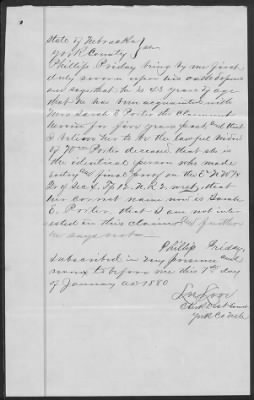 State of Nebraska
York County } ss
Phillip Priday being by me first
duly sworn upon his oath deposes
and says that he is 43 years of age
that he has been acquainted with
Mrs Sarah E Porter the claimant
herein for five years past and that
he believes her to be the lawful widow
of Wm Porter deceased that she is
the identical person who made
entry and final proof on the E ½ N W ¼
of sec 2 Tp 12 N. R 2 west, that
her correct name now is Sarah
E. Porter, that I am not inter
ested in this claim and further
says not
Phillip Priday,
Subscribed in my presence and
sworn to before me this 7th day
of January AD 1880
Clerk Dist Court
York Co Neb